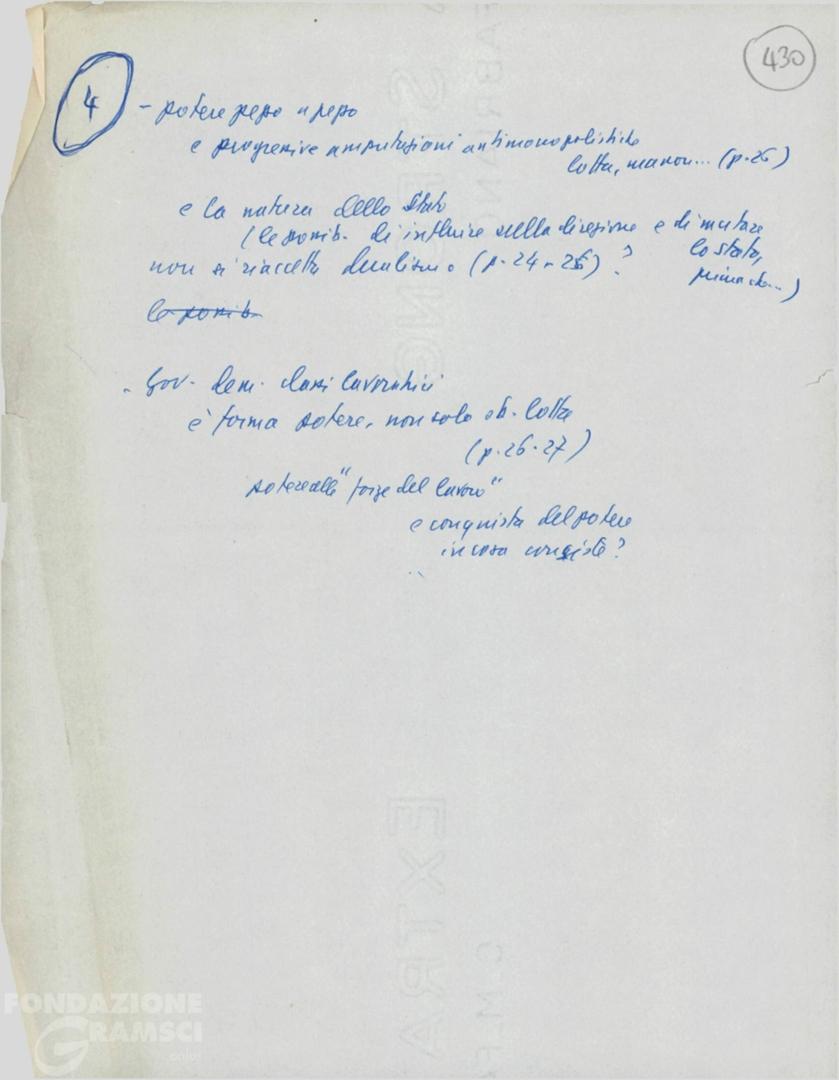 430
4
- potere pezzo a pezzo
e progressive amputazioni antimonopolistiche
lotta, ma non... (p. 26)
e la natura dello Stato
(le possib. di influire sulla direzione e di mutare
lo stato,
non si riaccetta dualismo (p. 24-25)?
prima che...)
le possib.
- Gov. dem. classi lavoratrici
è forma potere, non solo ob. lotta
(p. 26-27)
potere alle "forze del lavoro"
e conquista del potere
in cosa consiste?
FABRIANO
EXTRA
FONDAZIONE
GRAMSCI
onlus